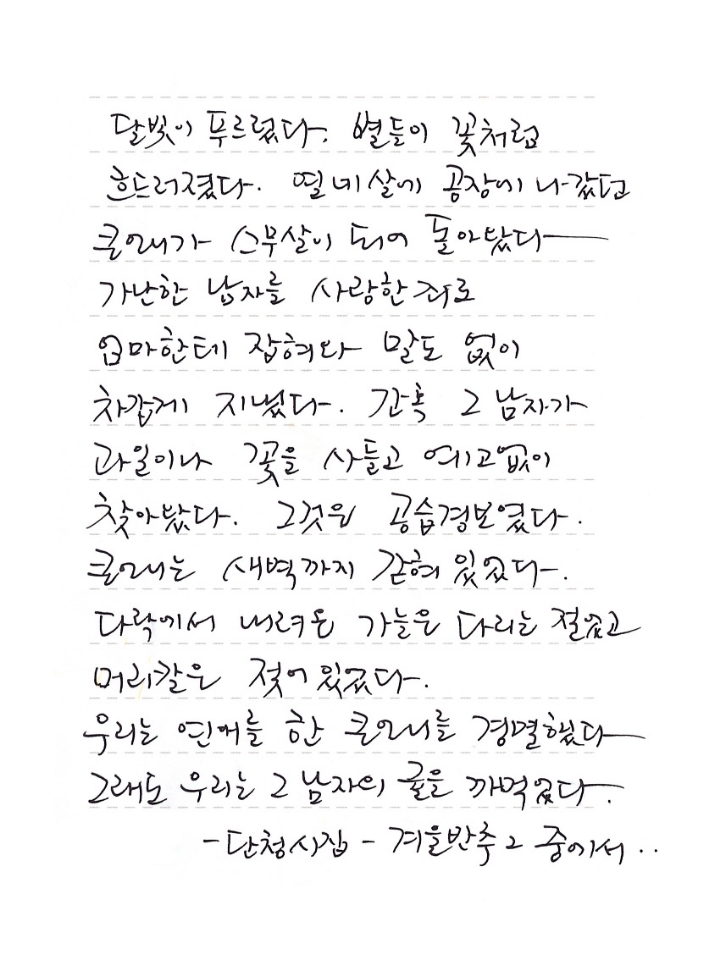 달빛이 푸르렀다. 별들이 꽃처럼
흐드러졌다. 열네살에 공장에 나갔던
큰애가 스무살이 되어 돌아왔다
가난한 남자를 사랑한 죄로
엄마한테 잡혀와 말도 없이
차갑게 지냈다. 간혹 그 남자가
과일이나 꽃을 사들고 예고없이
찾아왔다. 그것은 공습경보였다.
큰애는 새벽까지 갇혀 있었다.
다락에서 내려온 가늘은 다리는 절었고
머리칼은 젖어있었다.
우리는 연애를 한 큰언니를 경멸했다
그래도 우리는 그 남자의 귤을 까먹었다.
-단청시집 - 겨울반추2 중에서..